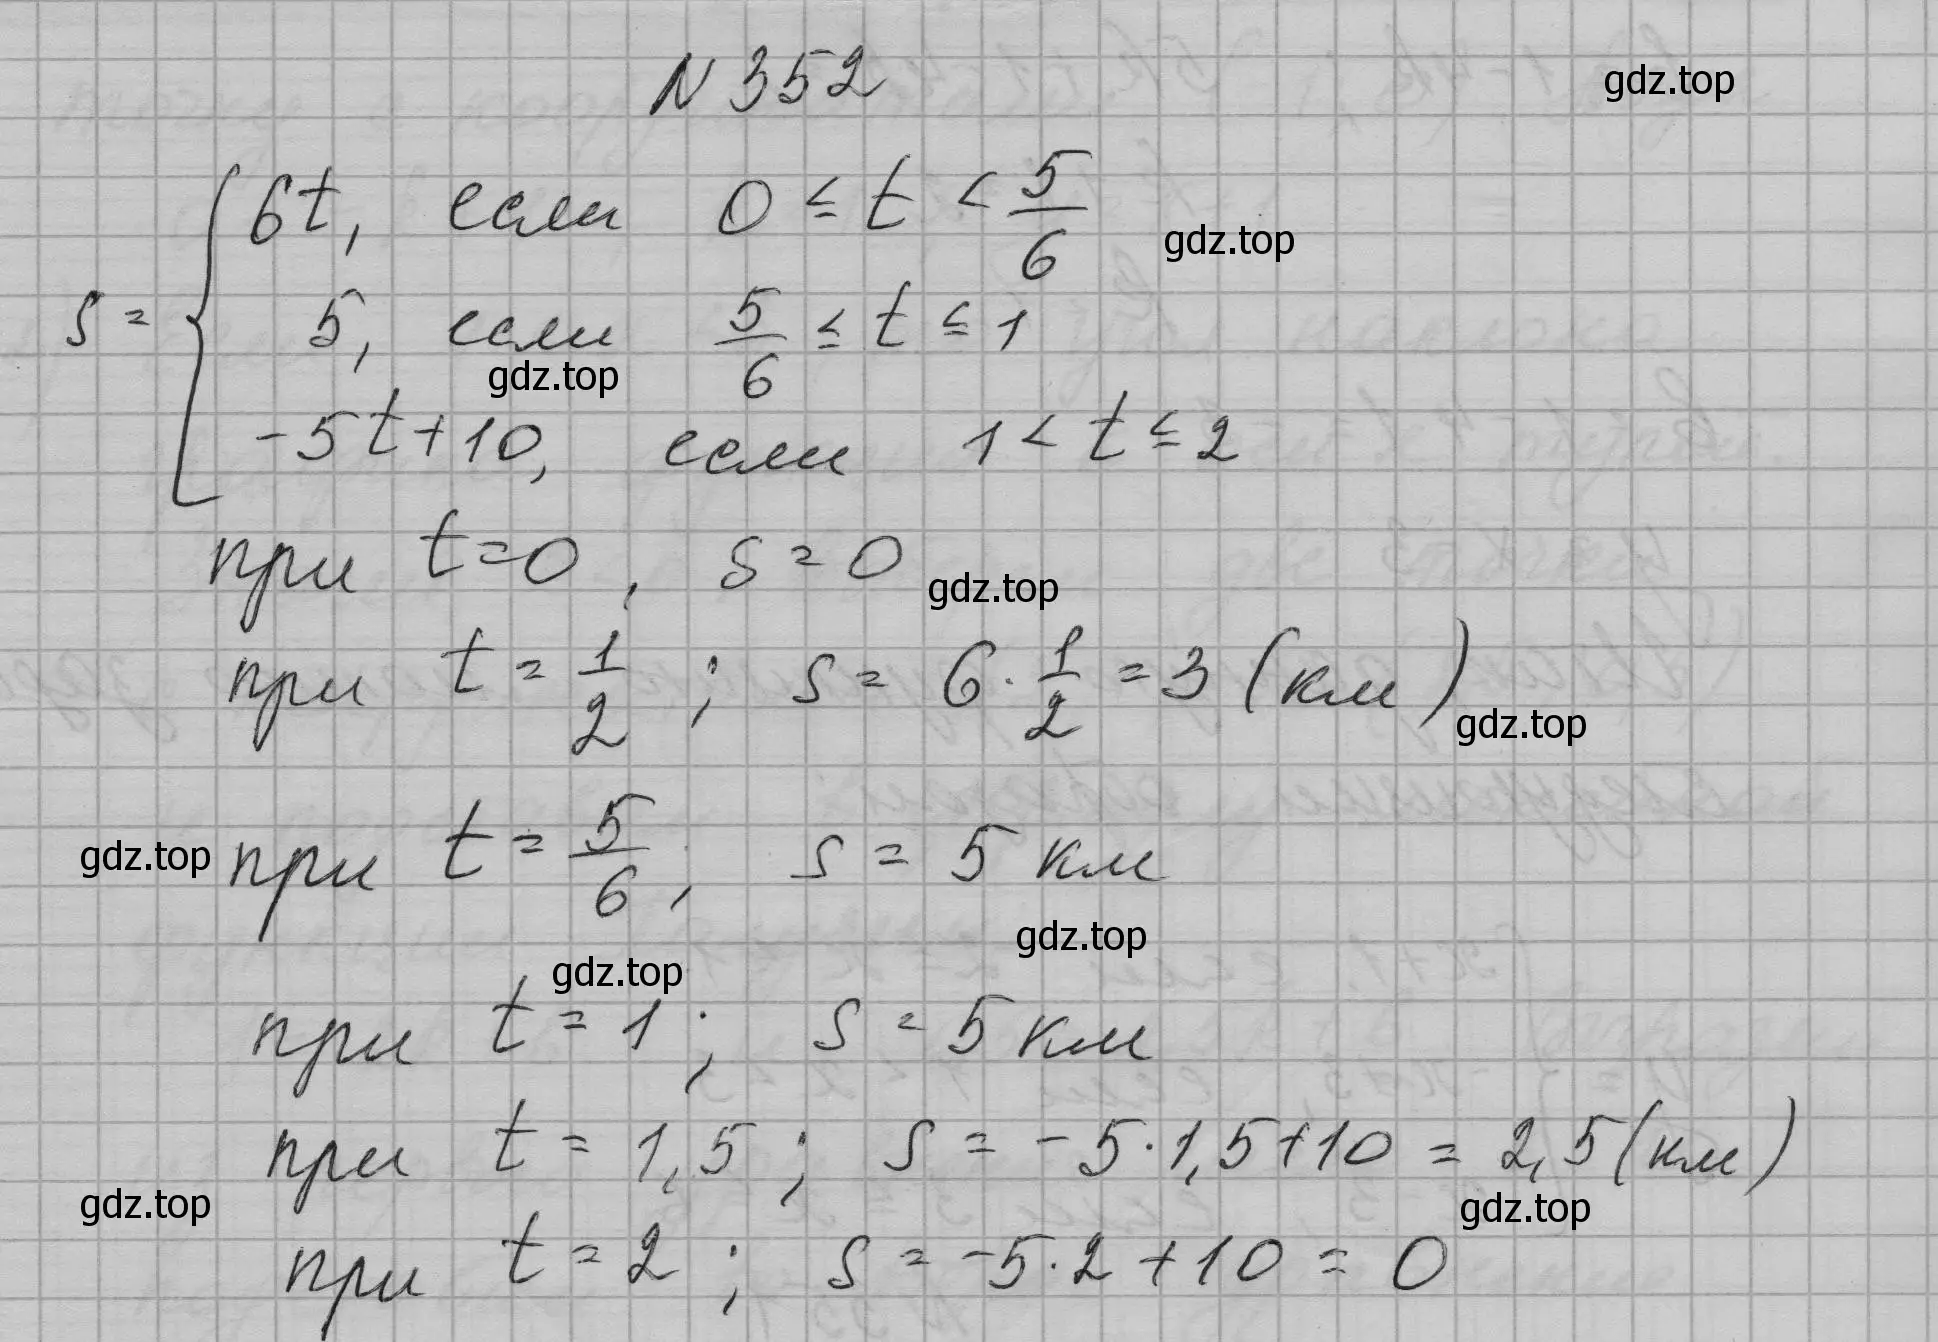 N 352
gdz.top
6t, если 0 ≤ t < 5/6
gdz.top
s = { 5, если 5/6 ≤ t ≤ 1
gdz.top
-5t+10, если 1 < t ≤ 2
при t=0, s=0
gdz.top
при t = 1/2 ; s = 6 · 1/2 = 3 (км)
gdz.top
gdz.top
при t = 5/6, s = 5 км
gdz.top
gdz.top
при t = 1; s = 5 км
при t = 1,5; s = -5·1,5+10 = 2,5(км)
gdz.top
gdz.top
при t = 2; s = -5·2+10 = 0